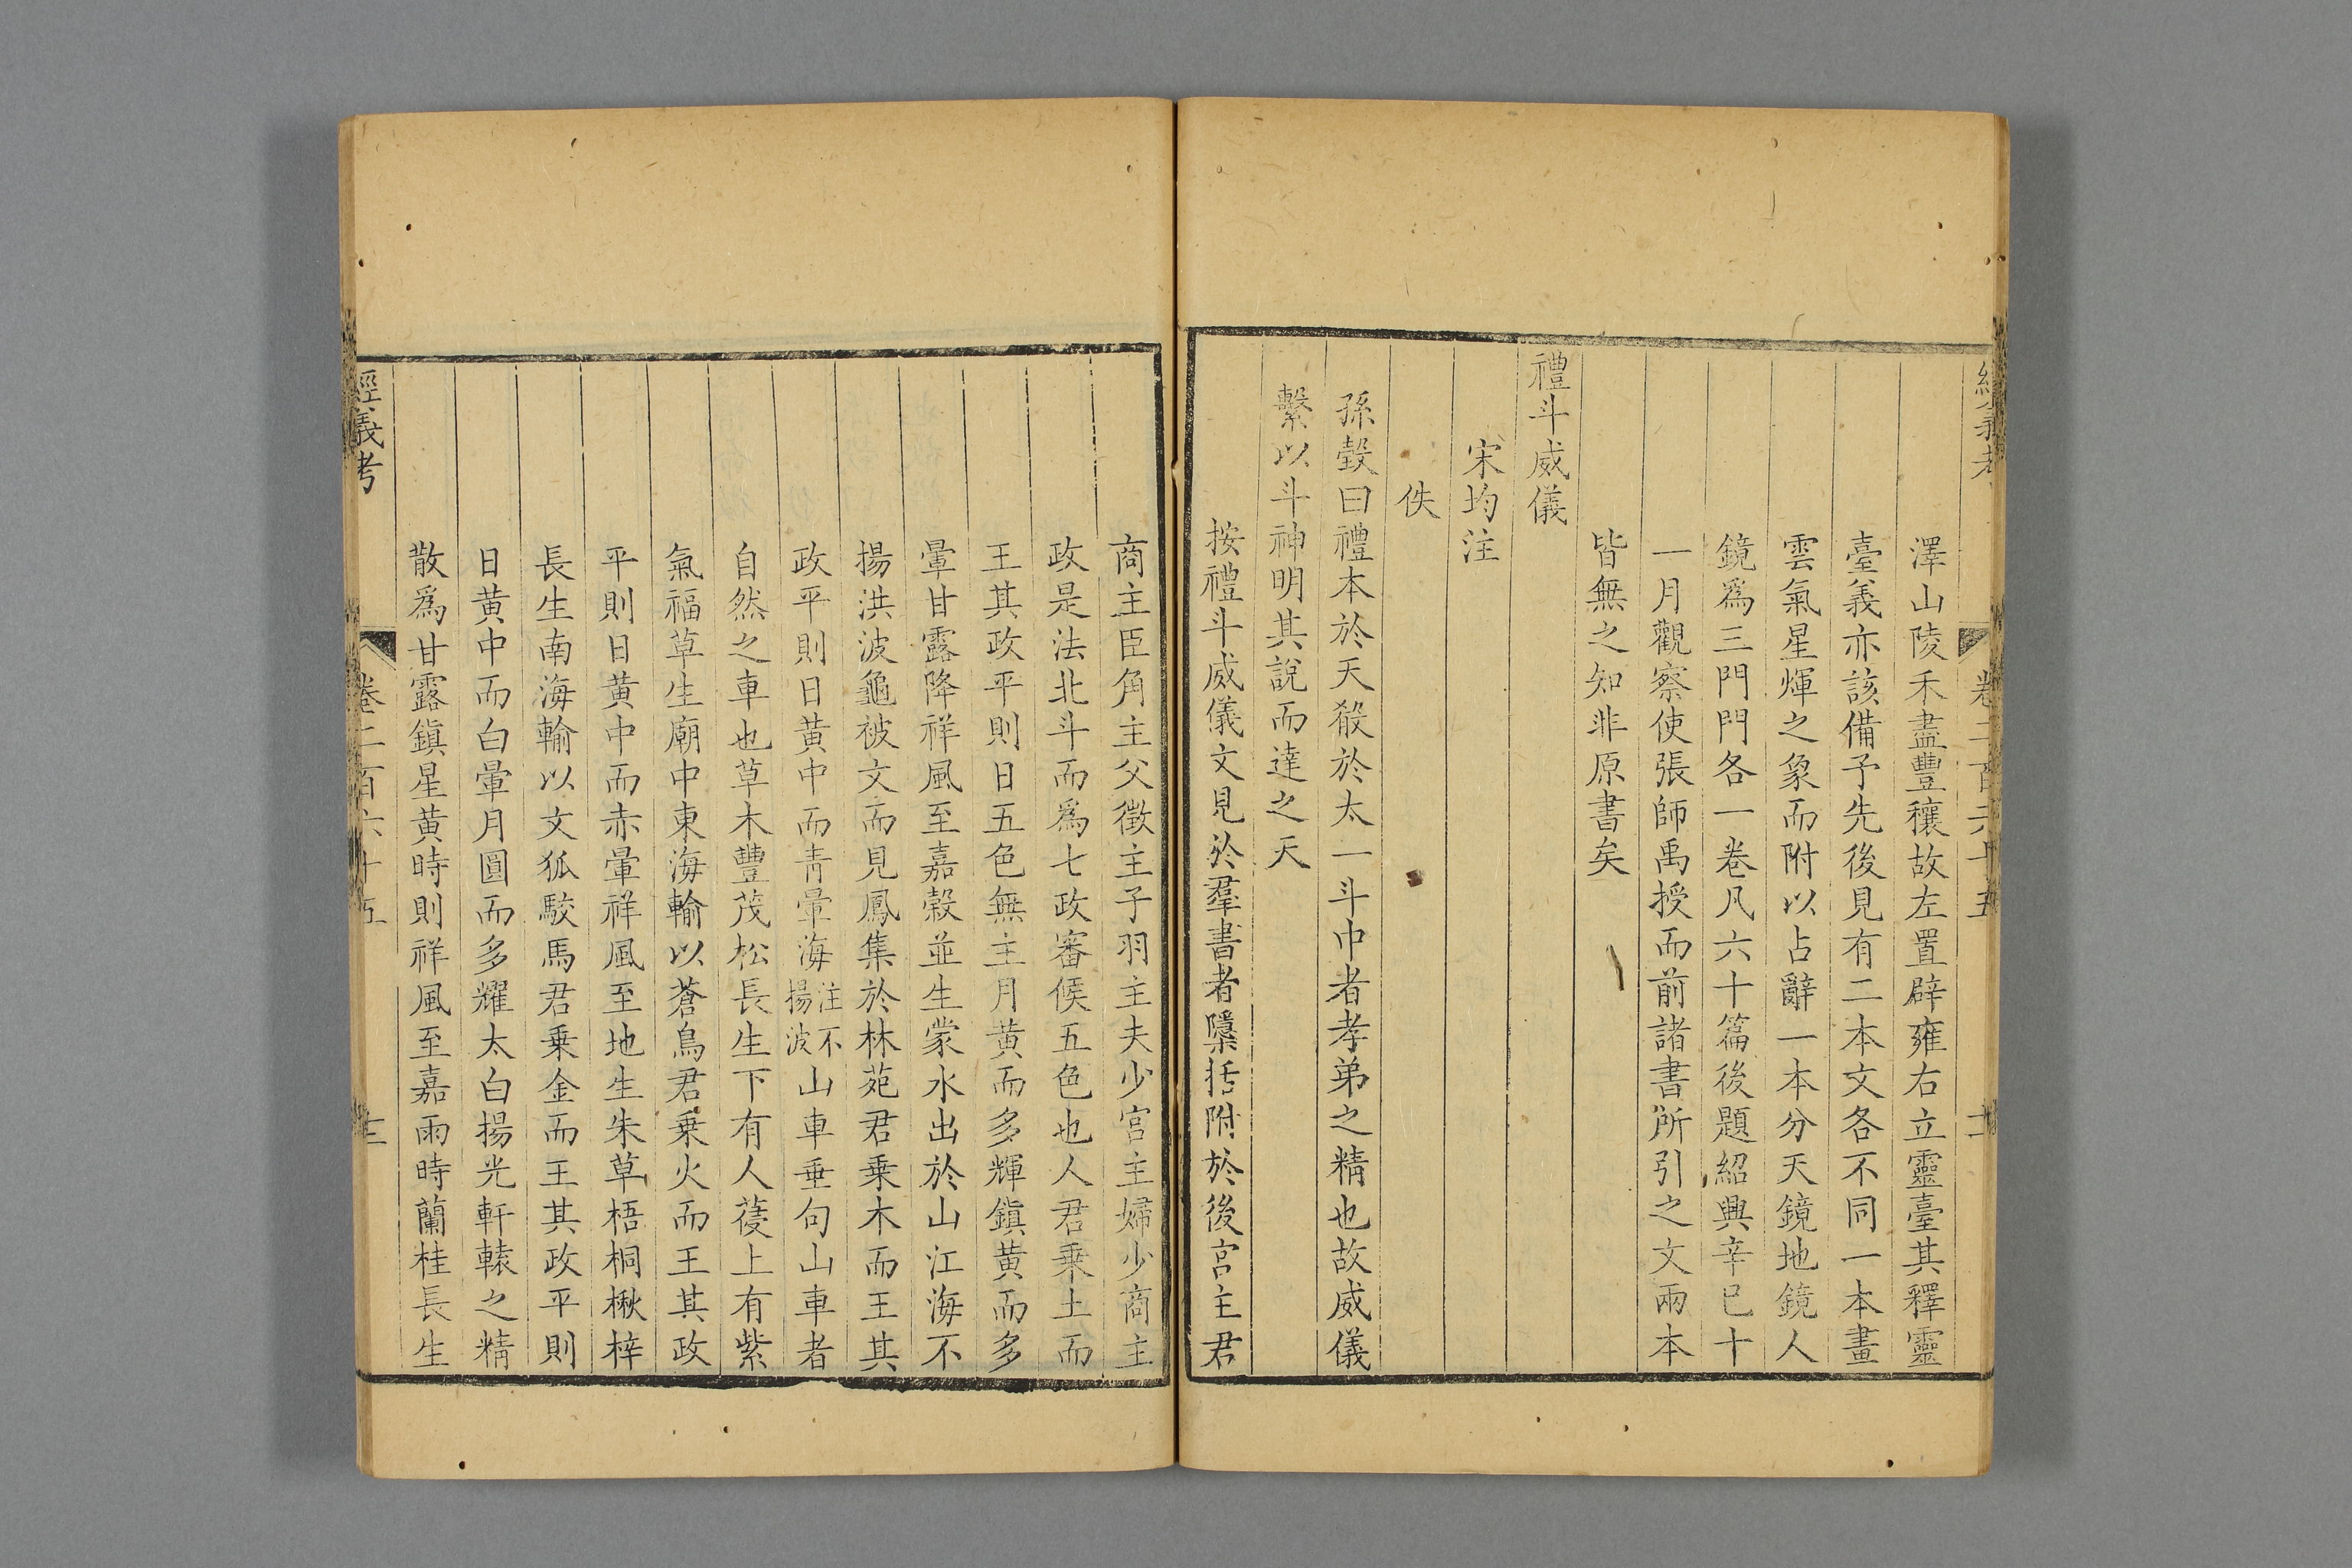 澤山陵禾盡豐穰故左置辟雍右立靈臺其釋靈
臺義亦該備予先後見有二本文各不同一本畫
雲氣星煇之象而附以占辭一本分天鏡地鏡人
鏡爲三門門各一卷凡六十篇後題紹興辛巳十
一月觀察使張師禹授而前諸書所引之文兩本
皆無之知非原書矣
禮斗威儀
宋均注
佚
孫瑴曰禮本於天殽於太一斗中者孝弟之精也故威儀
繫以斗神明其說而達之天
按禮斗威儀文見於羣書者隱括附於後宮主君
商主臣角主父徵主子羽主夫少宮主婦少商主
政是法北斗而爲七政審候五色也人君乗土而
王其政平則日五色無主月黃而多輝鎭黃而多
暈甘露降祥風至嘉榖並生蒙水出於山江海不
揚洪波龜被文而見鳳集於林苑君乗木而王其
政平則日黃中而靑暈海注不揚波山車垂句山車者
自然之車也草木豐茂松長生下有人葠上有紫
氣福草生廟中東海輸以蒼鳥君乗火而王其政
平則日黃中而赤暈祥風至地生朱草梧桐楸梓
長生南海輸以文狐駮馬君乗金而王其政平則
日黃中而白暈月圓而多耀太白揚光軒轅之精
散爲甘露鎭星黃時則祥風至嘉雨時蘭桂長生
經義考
卷二百六十五